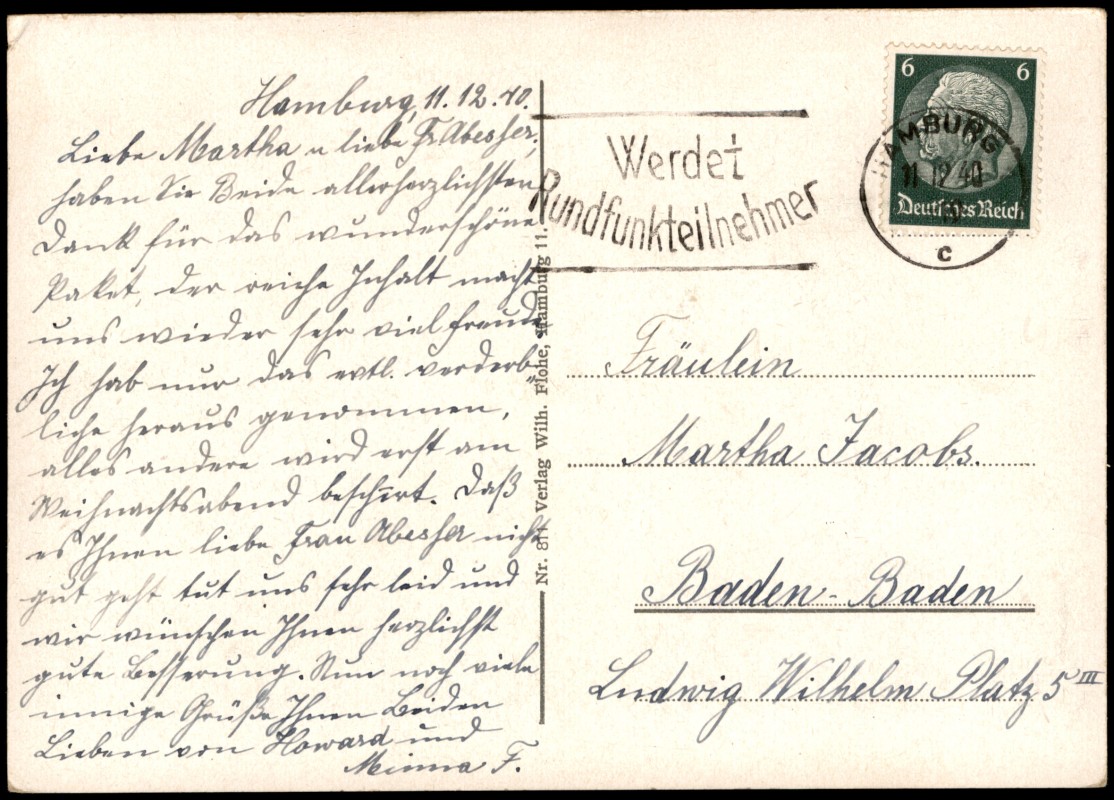 Hamburg, 11.12.40.
Liebe Martha u liebe Fr. Abesser,
haben Sie Beide allerherzlichsten
Dank für das wunderschöne
Paket, der reiche Inhalt macht
uns wieder sehr viel Freude
Ich hab nur das evtl. verderb-
liche heraus genommen,
alles andere wird erst am
Weihnachtsabend beschert. Daß
es Ihnen liebe Frau Abesser nicht
gut geht tut uns sehr leid und
wir wünschen Ihnen herzlichst
gute Besserung. Nun noch viele
innige Grüße Ihnen Beiden
Lieben von Howard und
Minna F.
Nr. 811 Verlag Wilh. Flohe, Hamburg 11.
Werdet
Rundfunkteilnehmer
6 6
Deutsches Reich
HAMBURG
11 12 40
c
Fräulein
Martha Jacobs.
Baden-Baden
Ludwig Wilhelm Platz 5 III